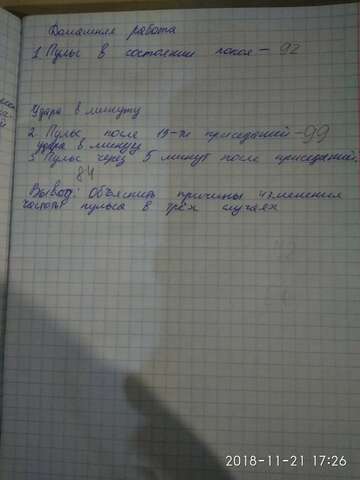 Домашняя работа
1. Пульс в состоянии покоя – 92
Удара в минуту
2. Пульс после 15-ти приседаний – 99
удара в минуту
3 Пульс через 5 минут после приседаний.
84
Вывод: Объяснить причины изменения
частоты пульса в трёх случаях
2018-11-21 17:26